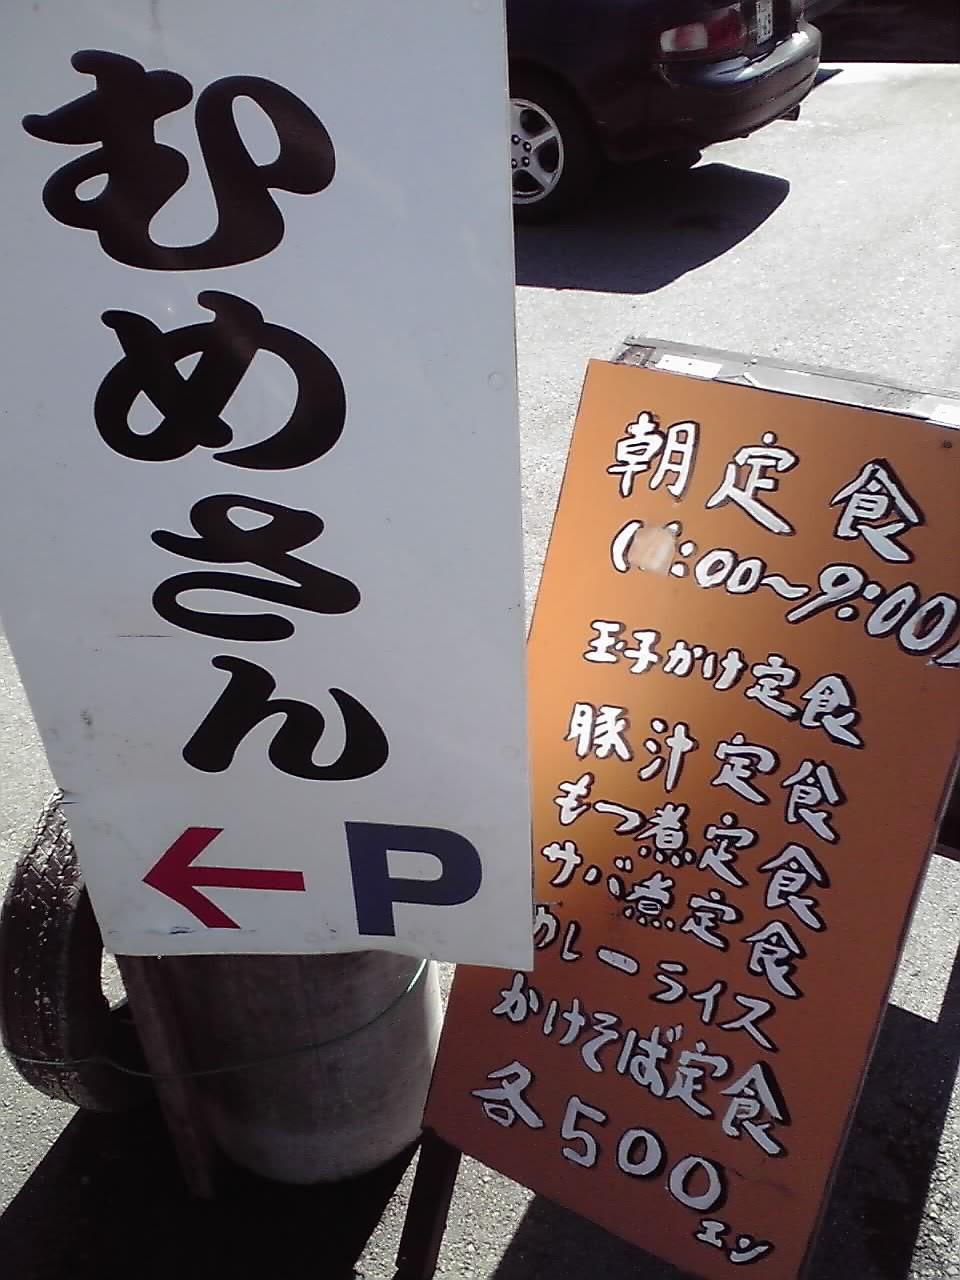 むめさん
←P
朝定食
:00〜9:00)
玉子かけ定食
豚汁定食
もつ煮定食
サバ煮定食
カレーライス
かけそば定食
各500エン